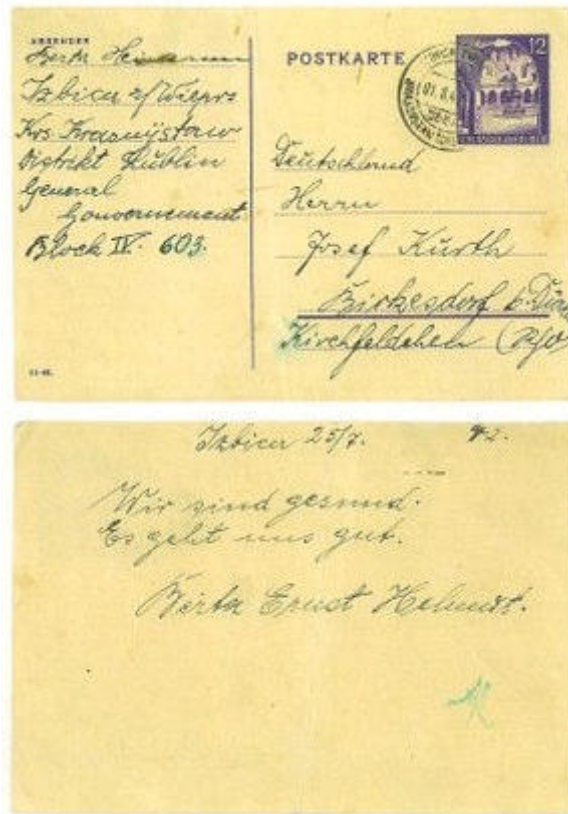 ABSENDER
Berta
Izbica a/Wieprz
Krs Krasnystaw
Distrikt Lublin
General
Gouvernement
Block IV. 603.
POSTKARTE
12
Deutschland
Herrn
Josef Kurth
Birkesdorf b. Dür
Kirchfeldchen
Izbica 25/7. 42.
Wir sind gesund.
Es geht uns gut.
Berta Ernst Helmut.